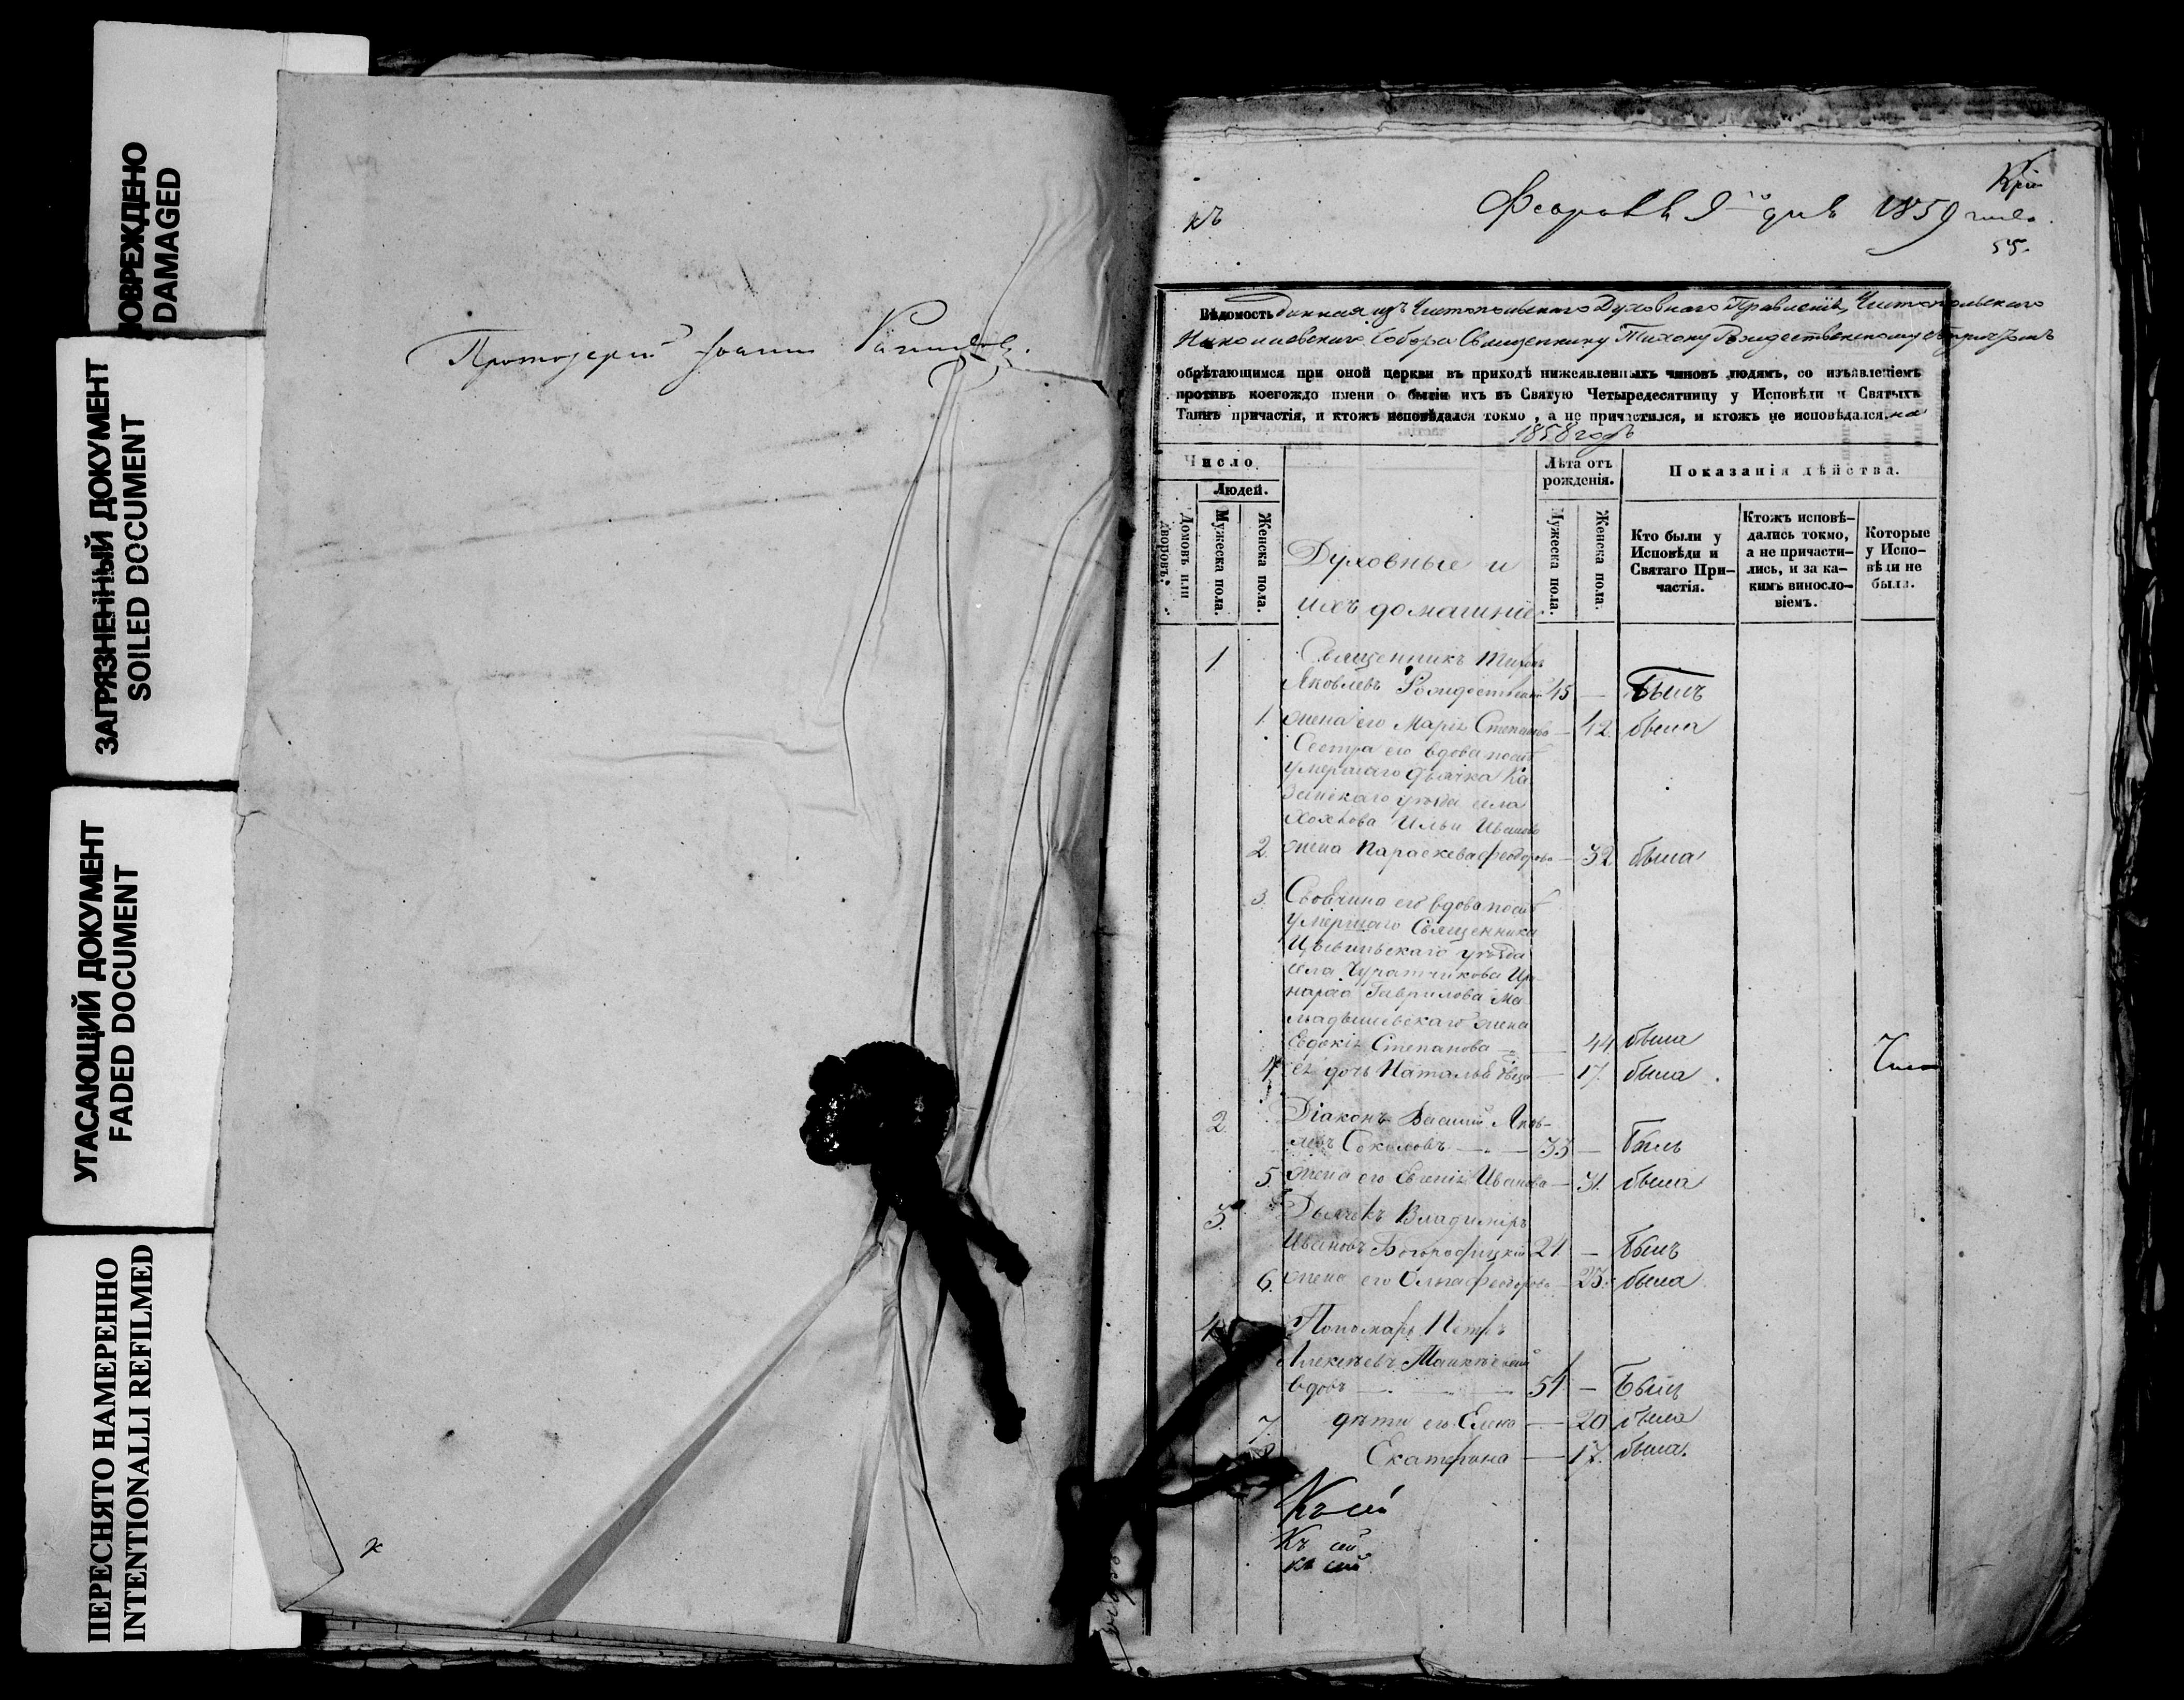 ПОВРЕЖДЕНО
DAMAGED
ЗАГРЯЗНЕННЫЙ ДОКУМЕНТ
SOILED DOCUMENT
УГАСАЮЩИЙ ДОКУМЕНТ
FADED DOCUMENT
ПЕРЕСНЯТО НАМЕРЕННО
INTENTIONALI REFILMED
Протоіерей Іоаннъ
къ
9го дня 1859
55.
Вѣдомость данная изъ Чистопольскаго Духовнаго Правленія, Чистопольскаго
Николаевскаго Собора Священнику Тихону Рождественскому съ причтомъ
обрѣтающимся при оной церкви въ приходѣ нижеявленныхъ чиновъ людямъ, со изъявленіемъ
противъ коегождо имени о бытіи ихъ въ Святую Четыредесятницу у Исповѣди и Святыхъ
Таинъ причастія, и ктожъ исповѣдался токмо, а не причастился, и ктожъ не исповѣдался. на
1858 годъ
Число
Людей.
Домовъ или дворовъ.
Мужеска пола.
Женска пола.
Духовные и
ихъ домашніе
Лѣта отъ рожденія.
Мужеска пола.
Женска пола.
Показанія дѣйства.
Кто были у Исповѣди и Святаго Причастія.
Ктожъ исповѣдались токмо, а не причастились, и за какимъ винословіемъ.
Которые у Исповѣди не были.
1 Священникъ Тихонъ
Яковлевъ Рождественскій 45 — Былъ
1. жена его Марія Степанова — 42. была
Сестра его вдова послѣ
умершаго дьячка Ка
занскаго уѣзда села
Хохлова Ильи Иванова
2. жена Параскева Феодорова — 32 была
3. Своячина его вдова послѣ
умершаго Священника
Цывильскаго уѣзда
села Чуратчикова
Гаврилова
жена
Евдокія Степанова — 44 была
4 ея дочь Наталья — 17. была
2. Діаконъ Василій Яков-
левъ Соколовъ — 33 — былъ
5. жена его Евгенія Иванова — 31. была
3. Дьячекъ Владиміръ
Ивановъ Богородицкій 21 — былъ
6. жена его Анна Феодорова — 23. была
4 Пономарь Петръ
Алексѣевъ
вдовъ — 54 — былъ
7. дѣти его Елена — 20 была
8 Екатерина — 17. была.
Къ сей
Къ сей
къ сей